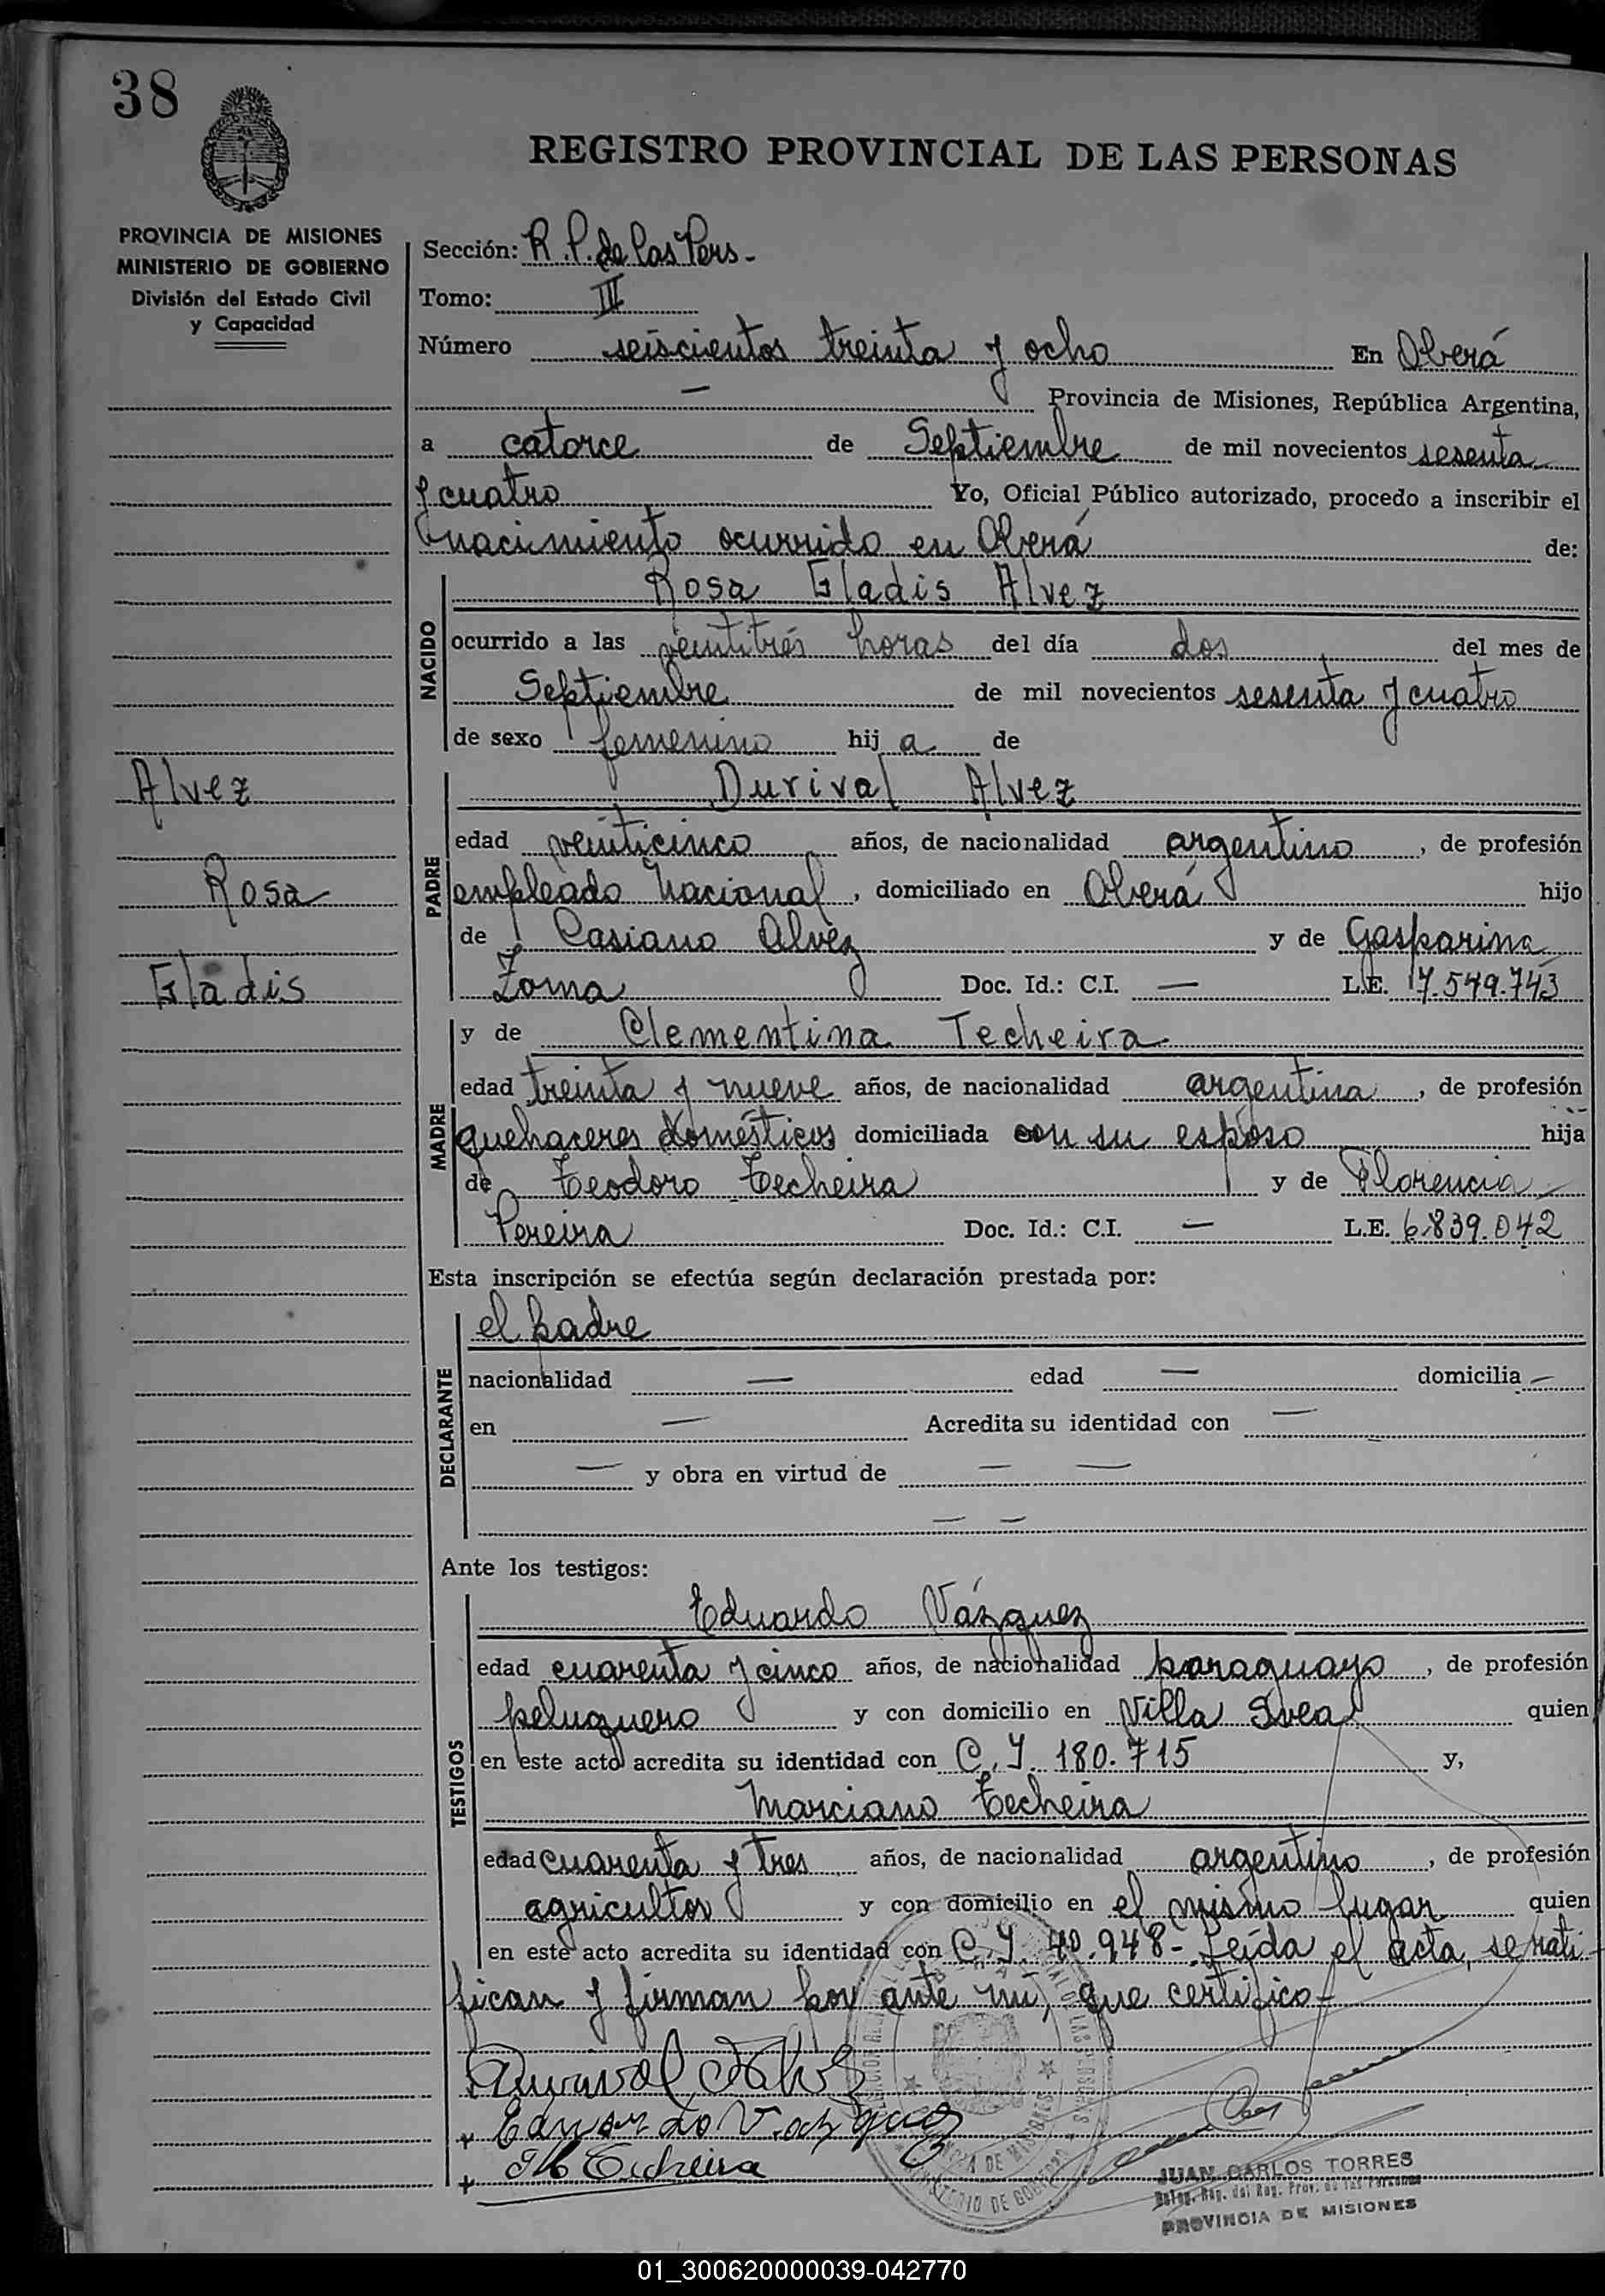 38
REGISTRO PROVINCIAL DE LAS PERSONAS
PROVINCIA DE MISIONES
MINISTERIO DE GOBIERNO
División del Estado Civil
y Capacidad
Sección: R. P. de las Pers.-
Tomo: III
Número seiscientos treinta y ocho En Oberá
— Provincia de Misiones, República Argentina,
a catorce de Septiembre de mil novecientos sesenta
y cuatro Yo, Oficial Público autorizado, procedo a inscribir el
nacimiento ocurrido en Oberá de:
NACIDO
Rosa Gladis Alvez
ocurrido a las veintitrés horas del día dos del mes de
Septiembre de mil novecientos sesenta y cuatro
de sexo femenino hij a de
Alvez
Rosa
Gladis
PADRE
Durival Alvez
edad veinticinco años, de nacionalidad argentino, de profesión
empleado nacional, domiciliado en Oberá hijo
de Casiano Alvez y de Gasparina
Zoma Doc. Id.: C.I. — L.E. 7.549.743
MADRE
y de Clementina Techeira
edad treinta y nueve años, de nacionalidad argentina, de profesión
quehaceres domésticos domiciliada con su esposo hija
de Teodoro Techeira y de Florencia
Pereira Doc. Id.: C.I. — L.E. 6.839.042
Esta inscripción se efectúa según declaración prestada por:
DECLARANTE
el padre
nacionalidad — edad — domicilia —
en — Acredita su identidad con —
— y obra en virtud de — —
— —
Ante los testigos:
TESTIGOS
Eduardo Vázquez
edad cuarenta y cinco años, de nacionalidad paraguayo, de profesión
peluquero y con domicilio en Villa Svea quien
en este acto acredita su identidad con C. I. 180.715 y,
Marciano Techeira
edad cuarenta y tres años, de nacionalidad argentino, de profesión
agricultor y con domicilio en el mismo lugar quien
en este acto acredita su identidad con C. I. 40.948- Leída el acta, se rati-
fican y firman por ante mí, que certifico-
Durival Alvez
+ Eduardo Vazquez
+ M Techeira
JUAN CARLOS TORRES
PROVINCIA DE MISIONES
MINISTERIO DE GOBIERNO
01_300620000039-042770